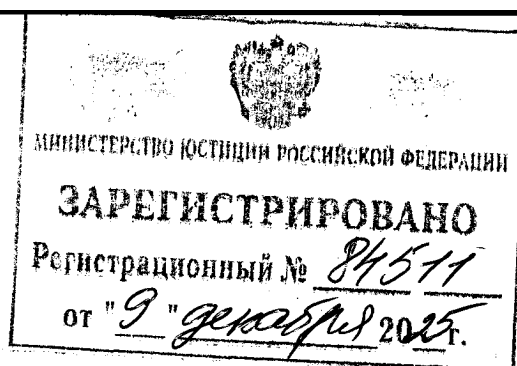 МИНИСТЕРСТВО ЮСТИЦИИ РОССИЙСКОЙ ФЕДЕРАЦИИ
ЗАРЕГИСТРИРОВАНО
Регистрационный № 84511
от "9" декабря 2025г.